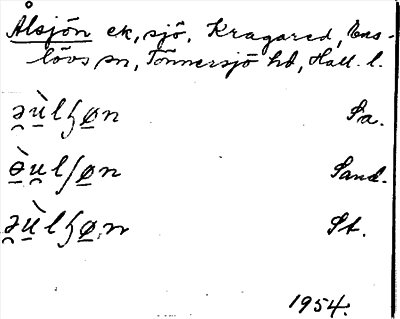 Ålsjön ek, sjö, Kragared, Ens-
lövs sn, Tönnersjö hd, Hall. l.
ə̯ù̯lʃø̠n Sa.
ə̠̀u̯lʃø̠n Sand.
ə̯ù̯lʃø̠n St.
1954.